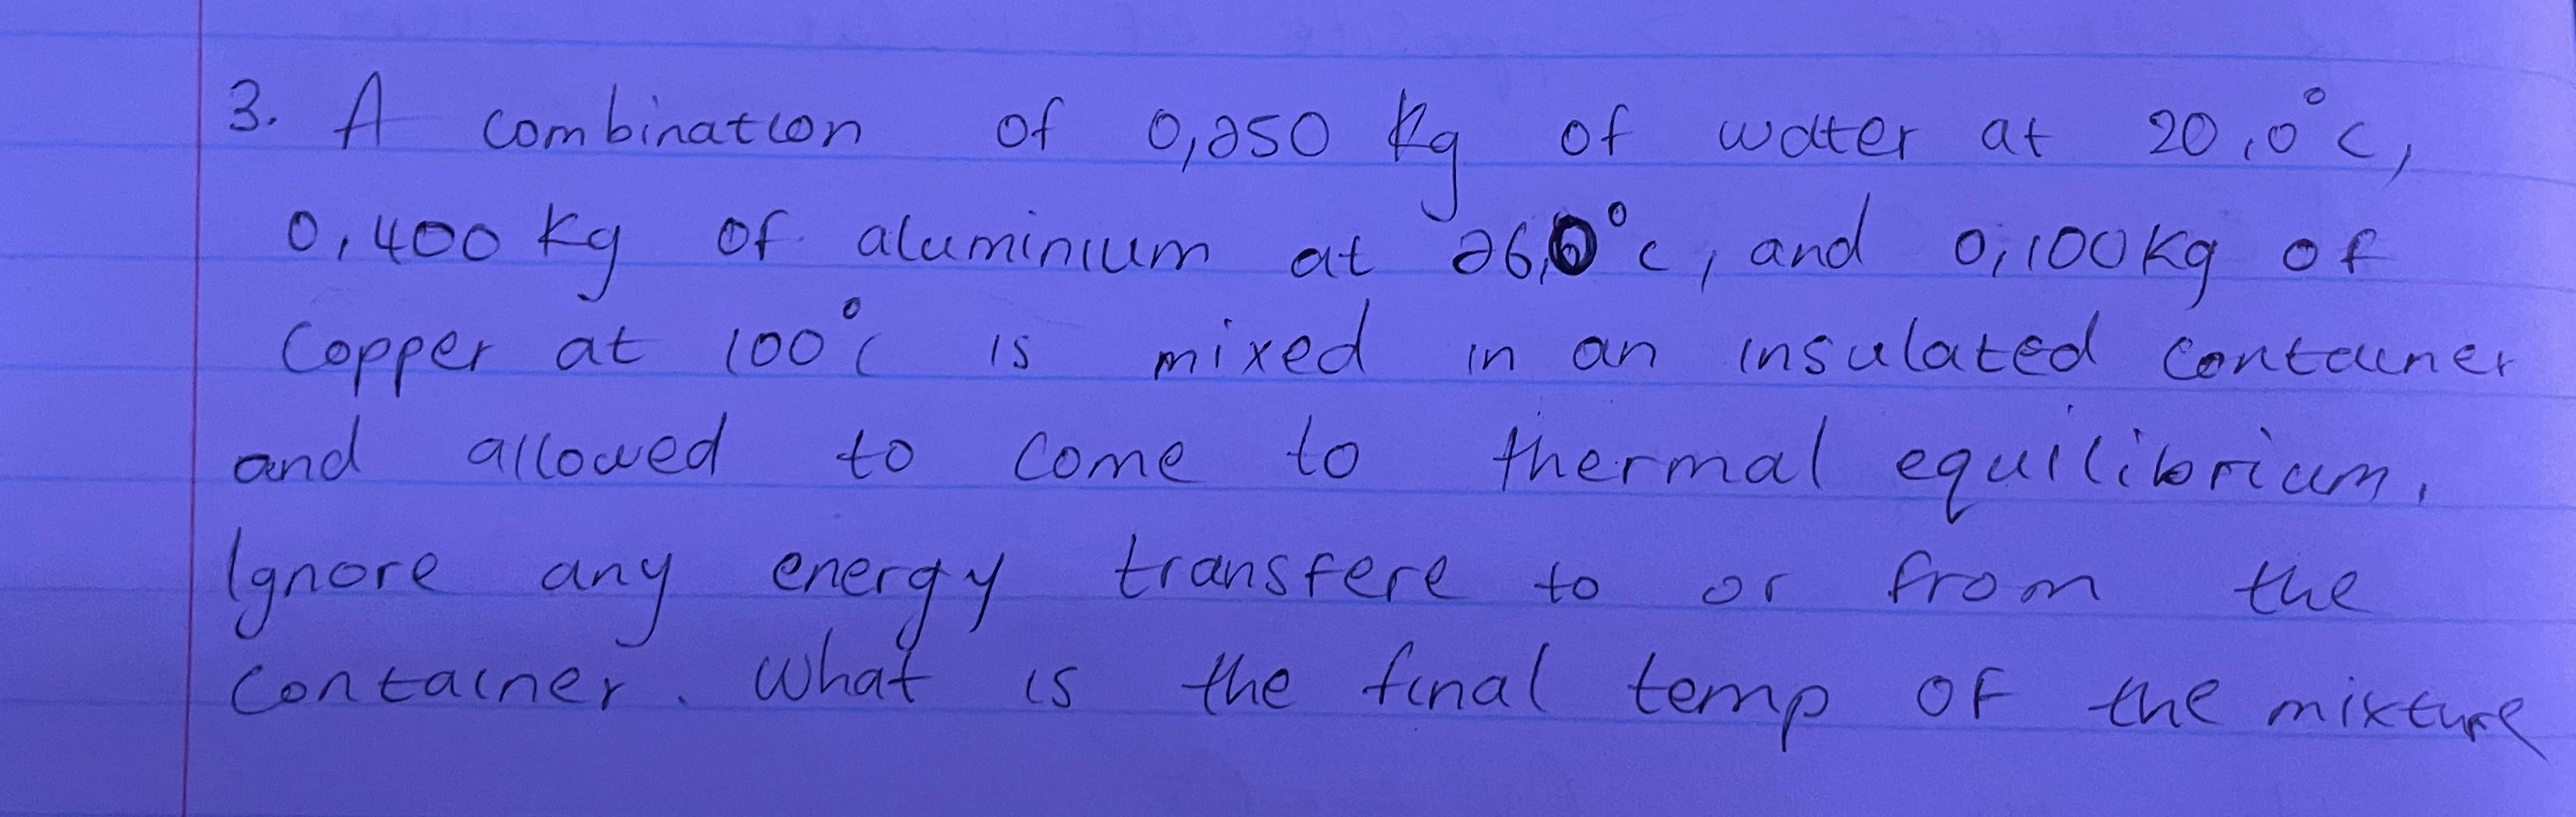 3. A combination of 0,250 kg of water at 20,0°C,
0,400 kg of aluminium at 26,0°C, and 0,100kg of
Copper at 100°C is mixed in an insulated container
and allowed to come to thermal equilibrium.
Ignore any energy transfere to or from the
container. What is the final temp of the mixture